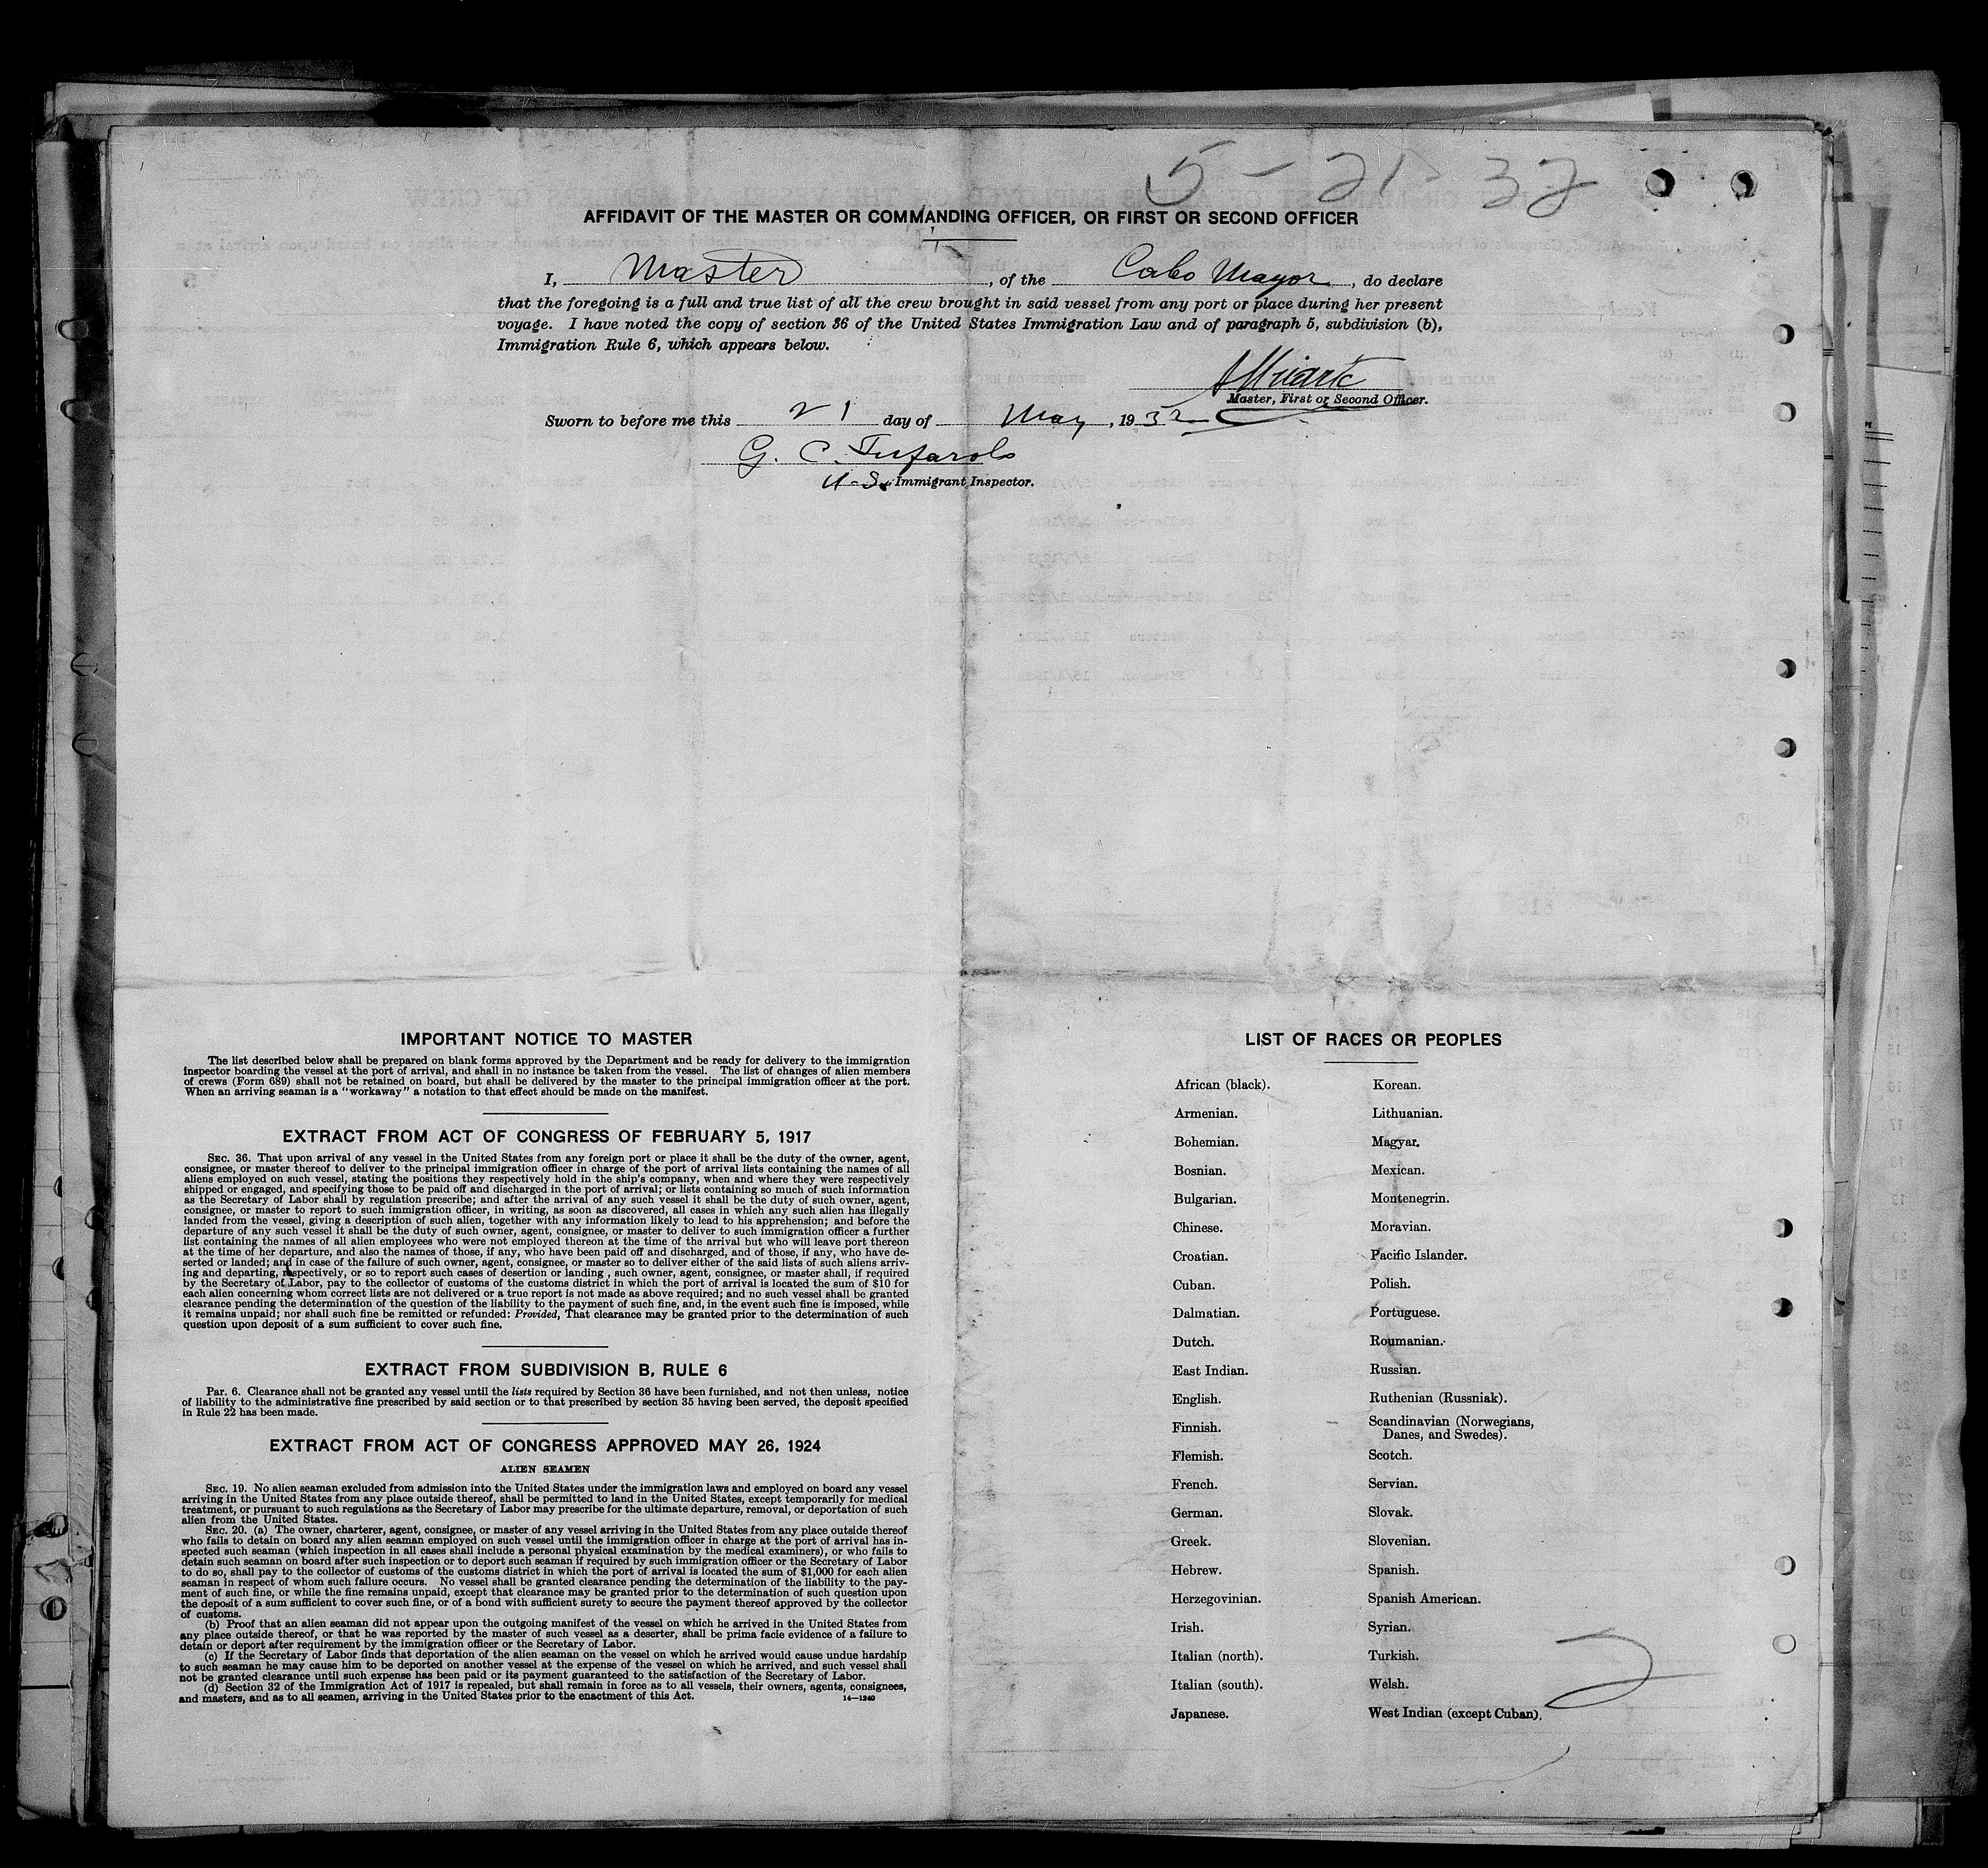 5-21-32
AFFIDAVIT OF THE MASTER OR COMMANDING OFFICER, OR FIRST OR SECOND OFFICER
I, Master, of the Cabo Mayor, do declare
that the foregoing is a full and true list of all the crew brought in said vessel from any port or place during her present
voyage. I have noted the copy of section 36 of the United States Immigration Law and of paragraph 5, subdivision (b),
Immigration Rule 6, which appears below.
Master, First or Second Officer.
Sworn to before me this 21 day of May, 1932
G. C.
U.S. Immigrant Inspector.
IMPORTANT NOTICE TO MASTER
The list described below shall be prepared on blank forms approved by the Department and be ready for delivery to the immigration
inspector boarding the vessel at the port of arrival, and shall in no instance be taken from the vessel. The list of changes of alien members
of crews (Form 689) shall not be retained on board, but shall be delivered by the master to the principal immigration officer at the port.
When an arriving seaman is a "workaway" a notation to that effect should be made on the manifest.
EXTRACT FROM ACT OF CONGRESS OF FEBRUARY 5, 1917
SEC. 36. That upon arrival of any vessel in the United States from any foreign port or place it shall be the duty of the owner, agent,
consignee, or master thereof to deliver to the principal immigration officer in charge of the port of arrival lists containing the names of all
aliens employed on such vessel, stating the positions they respectively hold in the ship's company, when and where they were respectively
shipped or engaged, and specifying those to be paid off and discharged in the port of arrival; or lists containing so much of such information
as the Secretary of Labor shall by regulation prescribe; and after the arrival of any such vessel it shall be the duty of such owner, agent,
consignee, or master to report to such immigration officer, in writing, as soon as discovered, all cases in which any such alien has illegally
landed from the vessel, giving a description of such alien, together with any information likely to lead to his apprehension; and before the
departure of any such vessel it shall be the duty of such owner, agent, consignee, or master to deliver to such immigration officer a further
list containing the names of all alien employees who were not employed thereon at the time of the arrival but who will leave port thereon
at the time of her departure, and also the names of those, if any, who have been paid off and discharged, and of those, if any, who have de-
serted or landed; and in case of the failure of such owner, agent, consignee, or master so to deliver either of the said lists of such aliens arriv-
ing and departing, respectively, or so to report such cases of desertion or landing , such owner, agent, consignee, or master shall, if required
by the Secretary of Labor, pay to the collector of customs of the customs district in which the port of arrival is located the sum of $10 for
each alien concerning whom correct lists are not delivered or a true report is not made as above required; and no such vessel shall be granted
clearance pending the determination of the question of the liability to the payment of such fine, and, in the event such fine is imposed, while
it remains unpaid; nor shall such fine be remitted or refunded: Provided, That clearance may be granted prior to the determination of such
question upon deposit of a sum sufficient to cover such fine.
EXTRACT FROM SUBDIVISION B, RULE 6
Par. 6. Clearance shall not be granted any vessel until the lists required by Section 36 have been furnished, and not then unless, notice
of liability to the administrative fine prescribed by said section or to that prescribed by section 35 having been served, the deposit specified
in Rule 22 has been made.
EXTRACT FROM ACT OF CONGRESS APPROVED MAY 26, 1924
ALIEN SEAMEN
SEC. 19. No alien seaman excluded from admission into the United States under the immigration laws and employed on board any vessel
arriving in the United States from any place outside thereof, shall be permitted to land in the United States, except temporarily for medical
treatment, or pursuant to such regulations as the Secretary of Labor may prescribe for the ultimate departure, removal, or deportation of such
alien from the United States.
SEC. 20. (a) The owner, charterer, agent, consignee, or master of any vessel arriving in the United States from any place outside thereof
who fails to detain on board any alien seaman employed on such vessel until the immigration officer in charge at the port of arrival has in-
spected such seaman (which inspection in all cases shall include a personal physical examination by the medical examiners), or who fails to
detain such seaman on board after such inspection or to deport such seaman if required by such immigration officer or the Secretary of Labor
to do so, shall pay to the collector of customs of the customs district in which the port of arrival is located the sum of $1,000 for each alien
seaman in respect of whom such failure occurs. No vessel shall be granted clearance pending the determination of the liability to the pay-
ment of such fine, or while the fine remains unpaid, except that clearance may be granted prior to the determination of such question upon
the deposit of a sum sufficient to cover such fine, or of a bond with sufficient surety to secure the payment thereof approved by the collector
of customs.
(b) Proof that an alien seaman did not appear upon the outgoing manifest of the vessel on which he arrived in the United States from
any place outside thereof, or that he was reported by the master of such vessel as a deserter, shall be prima facie evidence of a failure to
detain or deport after requirement by the immigration officer or the Secretary of Labor.
(c) If the Secretary of Labor finds that deportation of the alien seaman on the vessel on which he arrived would cause undue hardship
to such seaman he may cause him to be deported on another vessel at the expense of the vessel on which he arrived, and such vessel shall
not be granted clearance until such expense has been paid or its payment guaranteed to the satisfaction of the Secretary of Labor.
(d) Section 32 of the Immigration Act of 1917 is repealed, but shall remain in force as to all vessels, their owners, agents, consignees,
and masters, and as to all seamen, arriving in the United States prior to the enactment of this Act.
14—1240
LIST OF RACES OR PEOPLES
African (black).
Armenian.
Bohemian.
Bosnian.
Bulgarian.
Chinese.
Croatian.
Cuban.
Dalmatian.
Dutch.
East Indian.
English.
Finnish.
Flemish.
French.
German.
Greek.
Hebrew.
Herzegovinian.
Irish.
Italian (north).
Italian (south).
Japanese.
Korean.
Lithuanian.
Magyar.
Mexican.
Montenegrin.
Moravian.
Pacific Islander.
Polish.
Portuguese.
Roumanian.
Russian.
Ruthenian (Russniak).
Scandinavian (Norwegians,
Danes, and Swedes).
Scotch.
Servian.
Slovak.
Slovenian.
Spanish.
Spanish American.
Syrian.
Turkish.
Welsh.
West Indian (except Cuban).